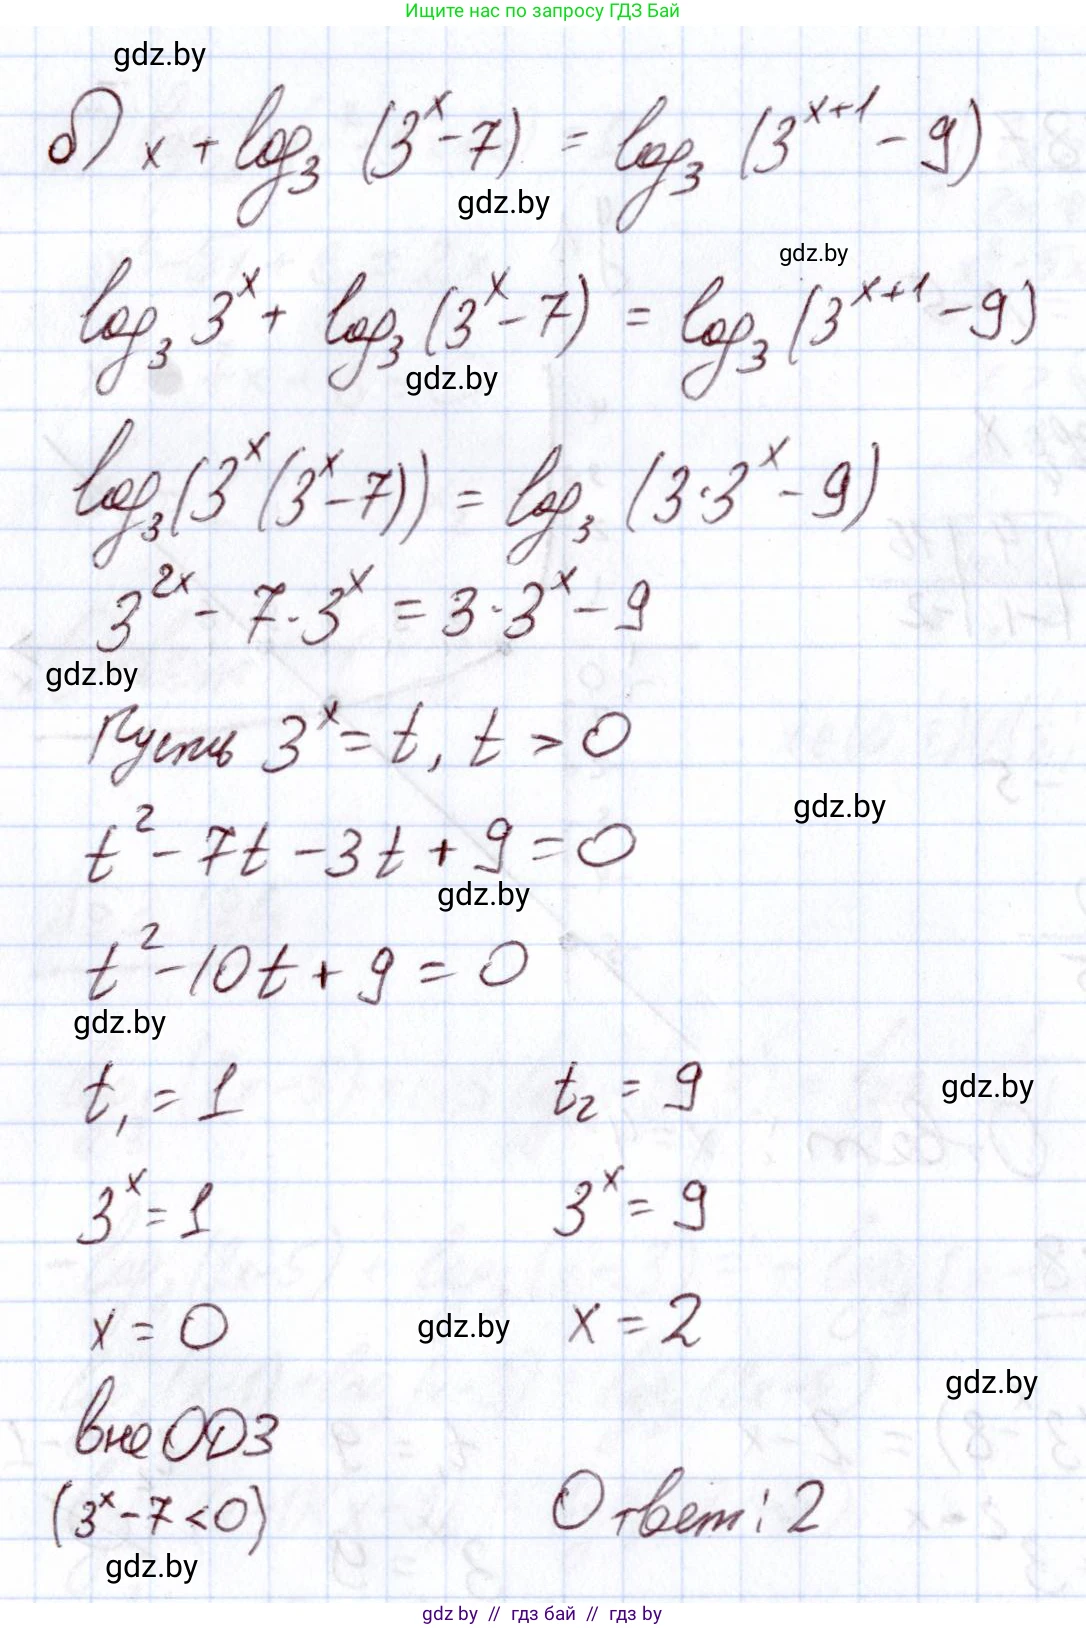 Ищите нас по запросу ГДЗ Бай
gdz.by
б) x + log₃ (3ˣ - 7) = log₃ (3ˣ⁺¹ - 9)
gdz.by
gdz.by
log₃ 3ˣ + log₃ (3ˣ - 7) = log₃ (3ˣ⁺¹ - 9)
gdz.by
log₃ (3ˣ (3ˣ - 7)) = log₃ (3·3ˣ - 9)
3²ˣ - 7·3ˣ = 3·3ˣ - 9
gdz.by
Пусть 3ˣ = t, t > 0
gdz.by
t² - 7t - 3t + 9 = 0
gdz.by
t² - 10t + 9 = 0
gdz.by
t₁ = 1 t₂ = 9
gdz.by
3ˣ = 1 3ˣ = 9
x = 0 x = 2
gdz.by
gdz.by
вне ОДЗ
(3ˣ - 7 < 0) Ответ: 2
gdz.by
gdz by // гдз бай // гдз by